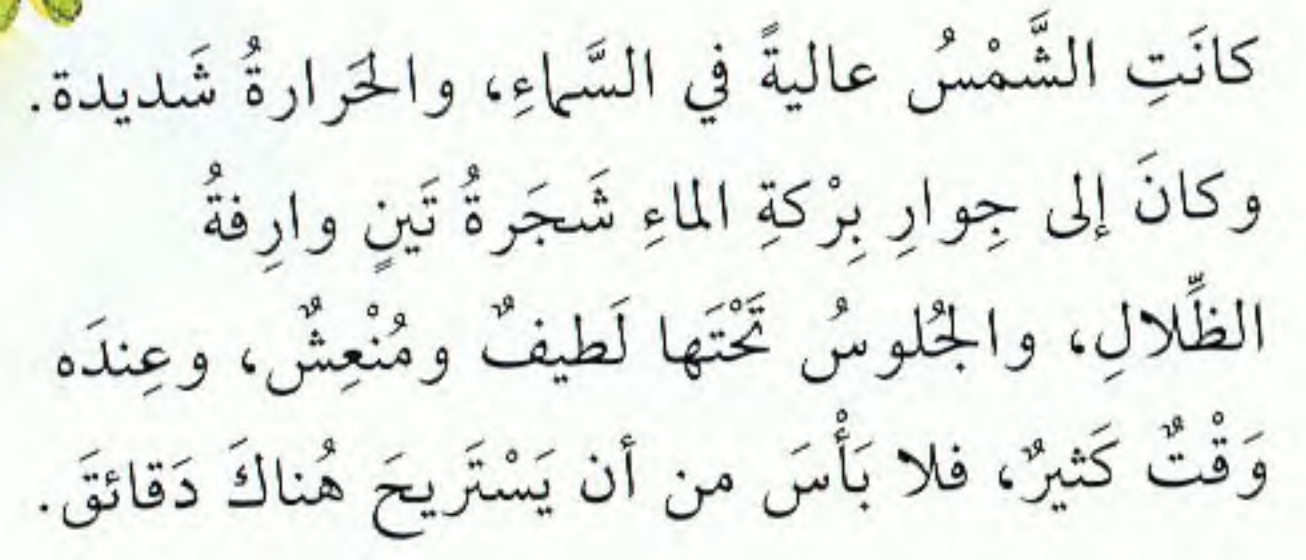 كانَتِ الشَّمْسُ عاليةً في السَّماءِ، والحَرارةُ شَديدة.
وكانَ إلى جِوارِ بِرْكَةِ الماءِ شَجَرةُ تَينٍ وارِفةُ
الظِّلالِ، والجُلوسُ تَحْتَها لَطيفٌ ومُنْعِشٌ، وعِندَه
وَقْتٌ كَثيرٌ، فلا بَأْسَ من أن يَسْتَريحَ هُناكَ دَقائقَ.